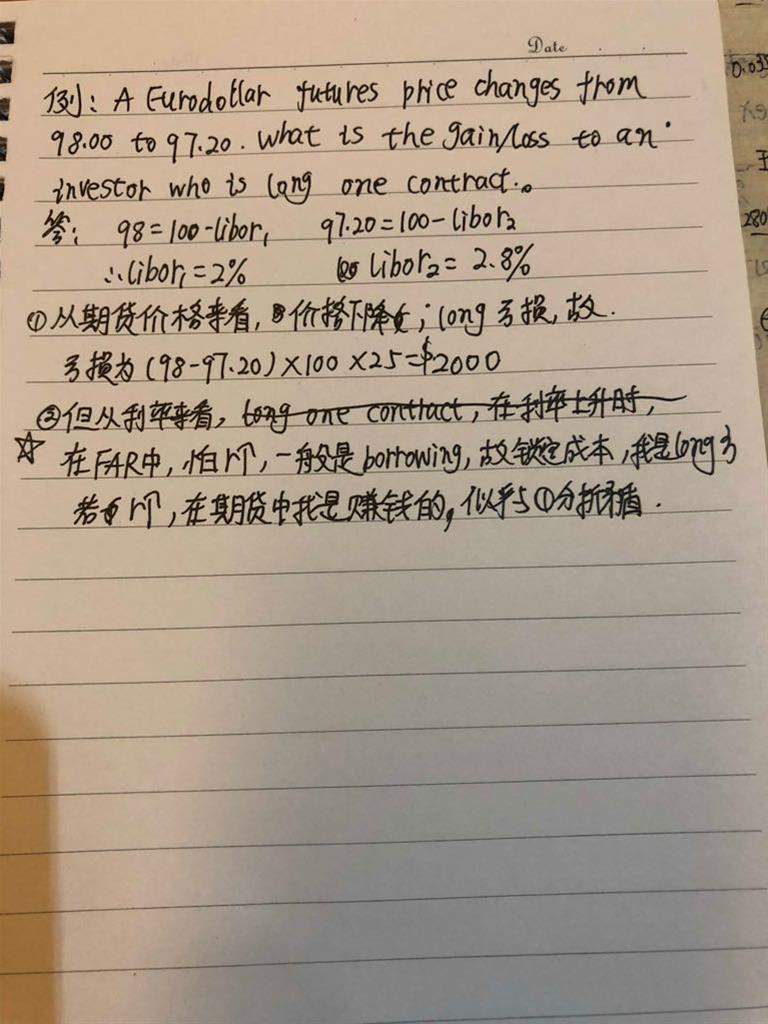 Date
0.035
例：A Eurodollar futures price changes from
98.00 to 97.20. What is the gain/loss to an
investor who is long one contract.
答：98=100-libor₁ 97.20=100-libor₂
∴libor₁=2% libor₂=2.8%
280
①从期货价格来看，价格下降；long亏损，故
亏损为(98-97.20)×100×25=$2000
②但从利率来看，long one contract，在利率上升时，
☆在FAR中，怕r↑，一般是borrowing，故锁定成本，我是long方
若r↑，在期货中我是赚钱的，似乎与①分析矛盾.